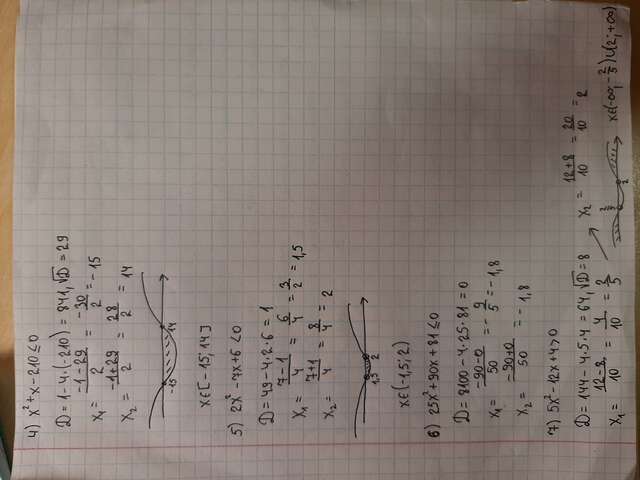 4) x²+x-210≤0
D=1-4·(-210)=841, √D=29
x₁= (-1-29)/2 = -30/2 = -15
x₂= (-1+29)/2 = 28/2 = 14
-15 14
x∈[-15; 14]
5) 2x²-7x+6<0
D=49-4·2·6=1
x₁= (7-1)/4 = 6/4 = 3/2 = 1,5
x₂= (7+1)/4 = 8/4 = 2
1,5 2
x∈(-1,5; 2)
6) 25x²+90x+81≤0
D=8100-4·25·81=0
x₁= (-90-0)/50 = -9/5 = -1,8
x₂= (-90+0)/50 = -1,8
7) 5x²-12x+4>0
D=144-4·5·4=64, √D=8
x₁= (12-8)/10 = 4/10 = 2/5
x₂= (12+8)/10 = 20/10 = 2
2